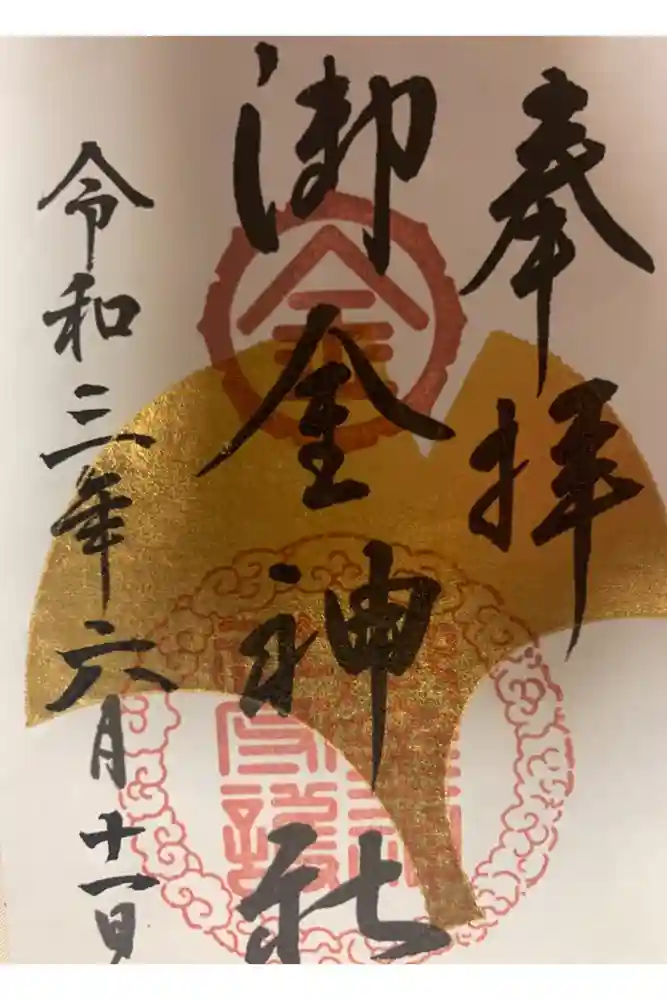 奉拝
御金神社
令和三年六月十一日
金